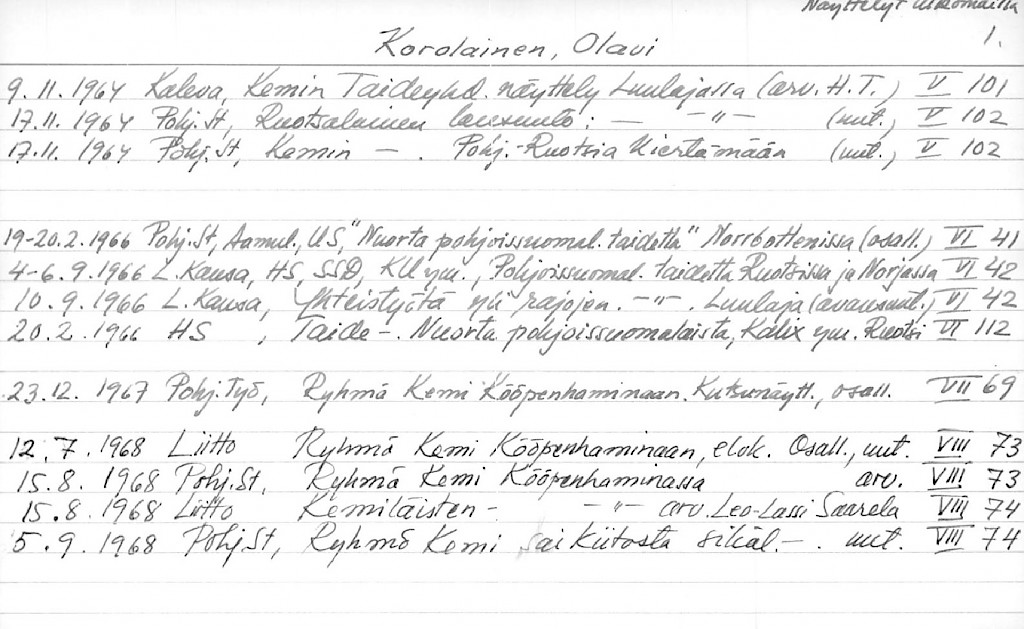 Näyttelyt ulkomailla
1.
Korolainen, Olavi
9.11.1964 Kaleva, Kemin Taideyhd. näyttely Luulajassa (arv. H.T.) V 101
17.11.1964 Pohj.St, Ruotsalainen lausunto: — —"— (uut.) V 102
17.11.1964 Pohj.St, Kemin — . Pohj.-Ruotsia kiertämään (uut.) V 102
19-20.2.1966 Pohj.St, Aamul., US, "Nuorta pohjoissuomal. taidetta" Norrbottenissa (osall.) VI 41
4-6.9.1966 L.Kansa, HS, SSD, KU ym., Pohjoissuomal. taidetta Ruotsissa ja Norjassa VI 42
10.9.1966 L.Kansa, Yhteistyötä yli rajojen. —"— . Luulaja (avausuut.) VI 42
20.2.1966 HS , Taide —. Nuorta pohjoissuomalaista, Kalix ym. Ruotsi VI 112
23.12.1967 Pohj.Työ, Ryhmä Kemi Kööpenhaminaan. Kutsunäytt., osall. VII 69
12.7.1968 Liitto Ryhmä Kemi Kööpenhaminaan, elok. Osall., uut. VIII 73
15.8.1968 Pohj.St, Ryhmä Kemi Kööpenhaminassa arv. VIII 73
15.8.1968 Liitto Kemiläisten - —"— arv. Leo-Lassi Saarela VIII 74
5.9.1968 Pohj.St, Ryhmä Kemi sai kiitosta sikäl. — . uut. VIII 74